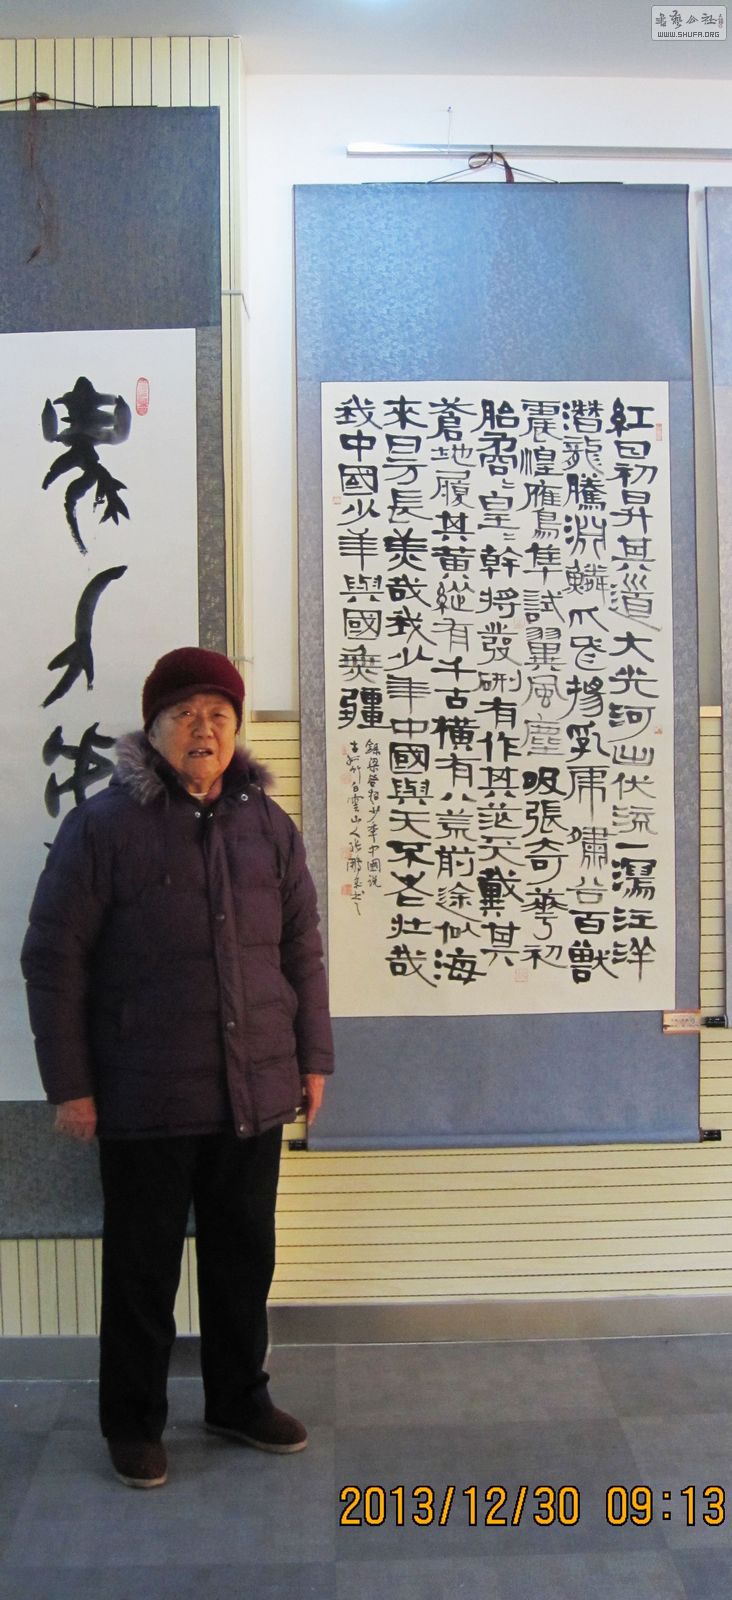 書藝公社
WWW.SHUFA.ORG
紅日初昇其道大光河出伏流一瀉汪洋
潛龍騰淵鱗爪飛揚乳虎嘯谷百獸
震惶鷹隼試翼風塵吸張奇華初
胎矞〻皇〻幹將發硎有作其芒天戴其
蒼地履其黃縱有千古橫有八荒前途似海
來日方長美哉我少年中國與天不老壯哉
我中國少年與國無疆
錄梁啓超少年中國說
白雲山人張鵬
2013/12/30 09:13